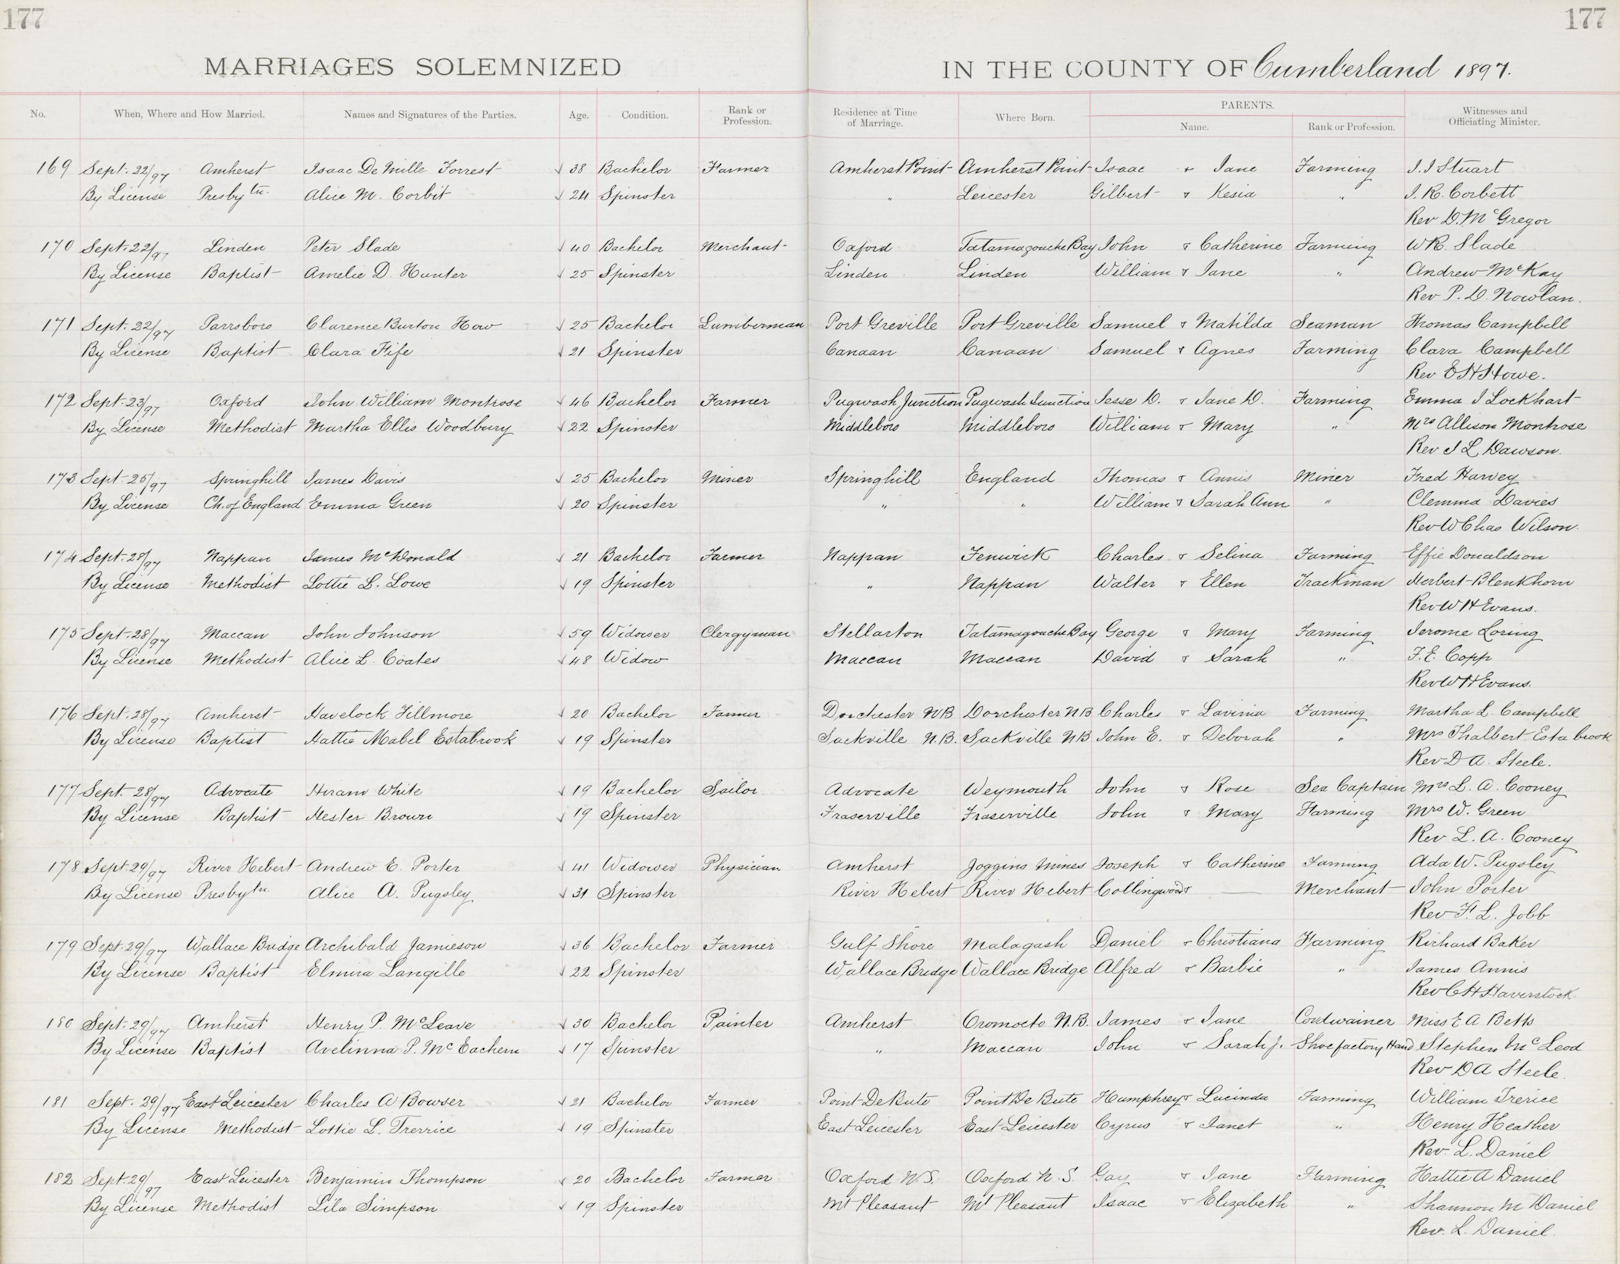 177 177
MARRIAGES SOLEMNIZED IN THE COUNTY OF Cumberland 1897.
No. When, Where and How Married. Names and Signatures of the Parties. Age. Condition. Rank or Profession. Residence at Time of Marriage. Where Born. PARENTS. Name. Rank or Profession. Witnesses and Officiating Minister.
169 Sept. 22/97 Amherst Isaac DeMille Forrest 38 Bachelor Farmer Amherst Point Amherst Point Isaac & Jane Farming J. J Stuart
By License Presbytn. Alice M. Corbit 24 Spinster " Leicester Gilbert & Kesia " J. R. Corbett
Rev D. McGregor
170 Sept. 22/97 Linden Peter Slade 40 Bachelor Merchant Oxford Tatamagouche Bay John & Catherine Farming W R. Slade
By License Baptist Amelie D. Hunter 25 Spinster Linden Linden William & Jane " Andrew McKay
Rev P. D. Nowlan.
171 Sept. 22/97 Parrsboro Clarence Burton How 25 Bachelor Lumberman Port Greville Port Greville Samuel & Matilda Seaman Thomas Campbell
By License Baptist Clara Fife 21 Spinster Canaan Canaan Samuel & Agnes Farming Clara Campbell
Rev E H Howe.
172 Sept. 23/97 Oxford John William Montrose 46 Bachelor Farmer Pugwash Junction Pugwash Junction Jesse D. & Jane D. Farming Emma J Lockhart
By License Methodist Martha Ellis Woodbury 22 Spinster Middleboro Middleboro William & Mary " Mrs Allison Montrose
Rev J L Dawson.
173 Sept. 25/97 Springhill James Davis 25 Bachelor Miner Springhill England Thomas & Annis Miner Fred Harvey
By License Ch. of England Emma Green 20 Spinster " " William & Sarah Ann " Clemma Davies
Rev W Chas Wilson.
174 Sept. 28/97 Nappan James McDonald 21 Bachelor Farmer Nappan Fenwick Charles & Selina Farming Effie Donaldson
By License Methodist Lottie L. Lowe 19 Spinster " Nappan Walter & Ellen Trackman Herbert Blenkhorn
Rev W H Evans.
175 Sept. 28/97 Maccan John Johnson 59 Widower Clergyman Stellarton Tatamagouche Bay George & Mary Farming Jerome Loring
By License Methodist Alice L. Coates 48 Widow Maccan Maccan David & Sarah " F. E. Copp
Rev W H Evans.
176 Sept. 28/97 Amherst Havelock Fillmore 20 Bachelor Farmer Dorchester N B Dorchester N B Charles & Lavinia Farming Martha L. Campbell
By License Baptist Hattie Mabel Estabrook 19 Spinster Sackville N. B. Sackville N B John E. & Deborah " Mrs Thalbert Estabrook
Rev D A. Steele.
177 Sept. 28/97 Advocate Hiram White 19 Bachelor Sailor Advocate Weymouth John & Rose Sea Captain Mrs L. A. Cooney
By License Baptist Hester Brown 19 Spinster Fraserville Fraserville John & Mary Farming Mrs W. Green
Rev L. A. Cooney
178 Sept. 29/97 River Hebert Andrew E. Porter 41 Widower Physician Amherst Joggins Mines Joseph & Catherine Farming Ada W. Pugsley
By License Presbytn. Alice A. Pugsley 31 Spinster River Hebert River Hebert Collingwood & — Merchant John Porter
Rev F. L. Jobb
179 Sept. 29/97 Wallace Bridge Archibald Jamieson 36 Bachelor Farmer Gulf Shore Malagash Daniel & Christiana Farming Richard Baker
By License Baptist Elmira Langille 22 Spinster Wallace Bridge Wallace Bridge Alfred & Barbie " James Annis
Rev C H Haverstock
180 Sept. 29/97 Amherst Henry P McLeave 30 Bachelor Painter Amherst Oromocto N. B. James & Jane Cordwainer Miss E A Betts
By License Baptist Avelinna P. McEachern 17 Spinster " Maccan John & Sarah J. Shoe factory Hand Stephen McLeod
Rev D A Steele.
181 Sept. 29/97 East Leicester Charles A Bowser 21 Bachelor Farmer Point De Bute Point De Bute Humphrey & Lucinda Farming William Trerice
By License Methodist Lottie L. Trerrice 19 Spinster East Leicester East Leicester Cyrus & Janet " Henry Heather
Rev L. Daniel
182 Sept. 29/97 East Leicester Benjamin Thompson 20 Bachelor Farmer Oxford N. S. Oxford N. S. Gay & Jane Farming Hattie A Daniel
By License Methodist Lila Simpson 19 Spinster Mt Pleasant Mt Pleasant Isaac & Elizabeth " Shannon M Daniel
Rev. L. Daniel.